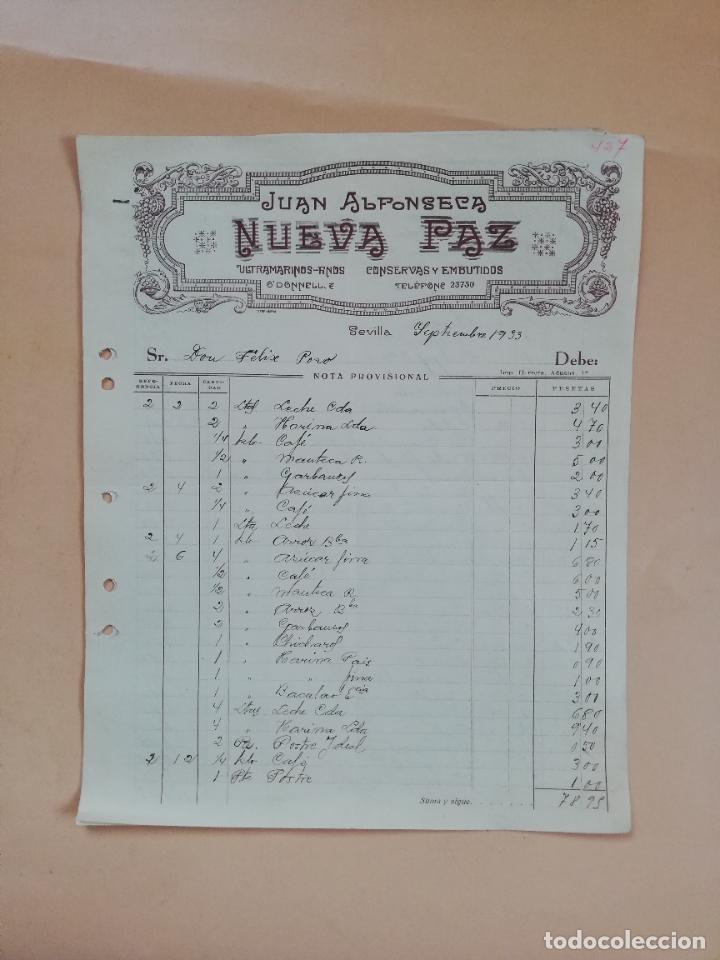 427
JUAN ALFONSECA
NUEVA PAZ
ULTRAMARINOS-FINOS CONSERVAS Y EMBUTIDOS
O'DONNELL, TELÉFONO 23730
Sevilla Septiembre 1933
Sr. Don Félix Pozo Debe:
NOTA PROVISIONAL
REFERENCIA FECHA CANTIDAD PRECIO PESETAS
2 3 2 Leche Cda 3 40
2 " Harina Lda 4 70
1/4 klo Café 3 00
1/2 " Manteca R. 5 00
1 " Garbanzos 2 00
2 4 2 " Azúcar fina 3 40
1/4 " Café 3 00
1 Leche 1 70
2 4 1 klo Arroz Bba 1 15
2 6 4 " Azúcar fina 6 80
1/2 " Café 6 00
1/2 " Manteca R 5 00
2 " Arroz Bba 2 30
2 " Garbanzos 4 00
1 " Chicharos 1 90
1 " Harina Pais 0 90
1 " " fina 1 00
1 " Bacalao 3 00
4 Leche Cda 6 80
4 " Harina Lda 9 40
2 Postre Ideal 0 50
2 12 1/4 klo Café 3 00
1 Pte Postre 1 00
Suma y sigue 78 95
todocoleccion
todocoleccion.net